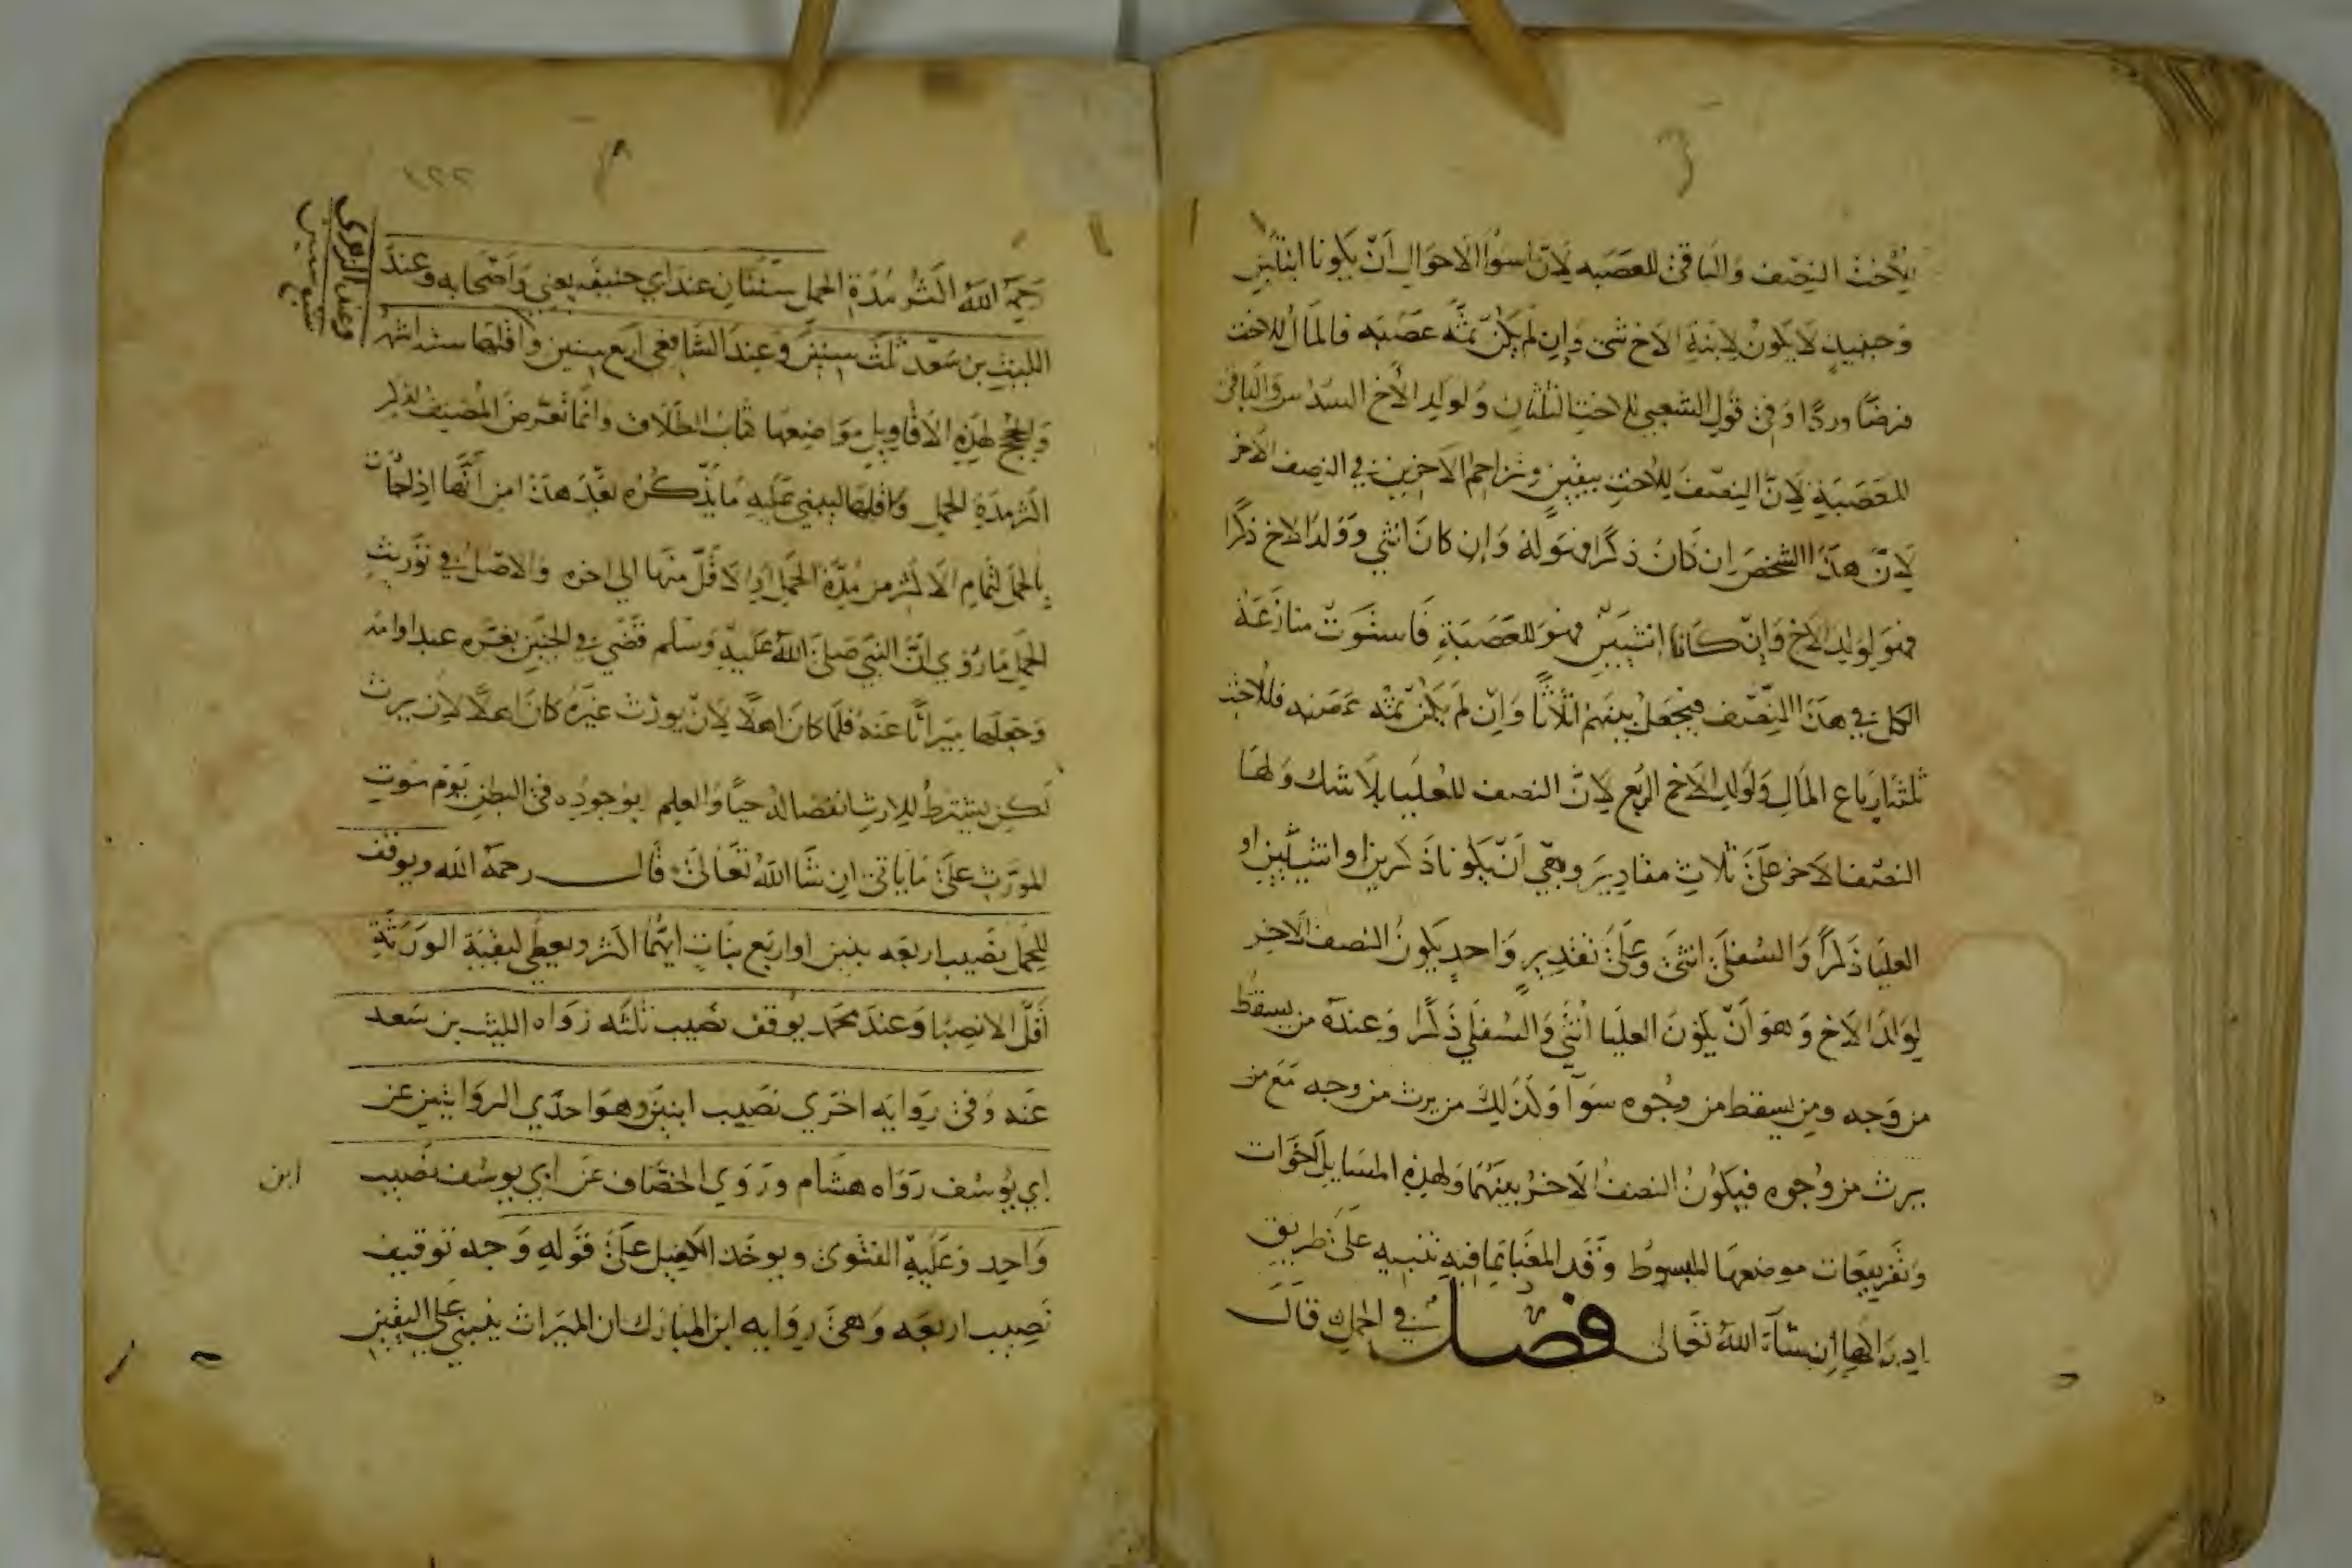 للاخت النصف والباقى للعصبه لان اسوا الاحوال ان يكونا ابنتين
وحينيذ لا يكون لابنة الاخ شى وان لم يكن ثمه عصبه فالمال للاخت
فرضا وردا وفى قول الشعبي للاخت الثلثان ولولد الاخ السدس والباقى
للعصبة لان النصف للاخت بيقين وتزاحم الاخرين في النصف الاخر
لان هذا الشخص ان كان ذكرا فهو له وان كان انثي وولد الاخ ذكرا
فهو لولد الاخ وان كانا انثيين فهو للعصبة فاستوت منازعة
الكل في هذا النصف فيجعل بينهم اثلاثا وان لم يكن ثمه عصبه فللاخت
ثلثة ارباع المال ولولد الاخ الربع لان النصف للعليا بلا شك ولها
النصف الاخر على ثلاث مقادير وهي ان يكونا ذكرين او انثيين او
العليا ذكرا والسفلى انثى وعلى تقدير واحد يكون النصف الاخر
لولد الاخ وهو ان يكون العليا انثي والسفلي ذكرا وعنده من يسقط
من وجه ومن يسقط من وجوه سوا وكذلك من يرث من وجه مع من
يرث من وجوه فيكون النصف الاخر بينهما ولهذه المسايل اخوات
وتفريعات موضعها المبسوط وقد المغنا بما فيه تنبيه على طريق
ادراكها ان شاء الله تعالى فصل في الحمل قال
١٢٢
رحمه الله اكثر مدة الحمل سنتان عند ابي حنيفه يعني واصحابه وعند
الليث بن سعد ثلث سنين وعند الشافعي اربع سنين واقلها ستة اشهر
وعند الزهرى
سبع سنين
والحجج لهذه الاقاويل مواضعها كتاب الطلاق وانما تعرض المصنف لذكر
اكثر مدة الحمل واقلها ليبني عليه ما يذكره بعد هذا من انها اذا جات
بالحمل لتمام الاكثر من مدة الحمل او لاقل منها الى اخره والاصل في توريث
الحمل ما روي ان النبي صلى الله عليه وسلم قضي في الجنين بغره عبد او امه
وجعلها ميراثا عنه فلما كان اهلا لان يورث غيره كان اهلا لان يرث
لكن يشترط للارث انفصاله حيا والعلم بوجوده فى البطن يوم موت
المورث على ما ياتى ان شا الله تعالى قال رحمه الله ويوقف
للحمل نصيب اربعه بنين او اربع بنات ايهما اكثر ويعطي لبقية الورثة
اقل الانصبا وعند محمد يوقف نصيب ثلثه رواه الليث بن سعد
عنه وفى روايه اخري نصيب ابنين وهو احدي الروايتين عن
ابي يوسف رواه هشام وروي الخصاف عن ابي يوسف نصيب
ابن
واحد وعليه الفتوى ويوخذ الكفيل على قوله وجه توقيف
نصيب اربعه وهى روايه ابن المبارك ان الميراث يبني على اليقين